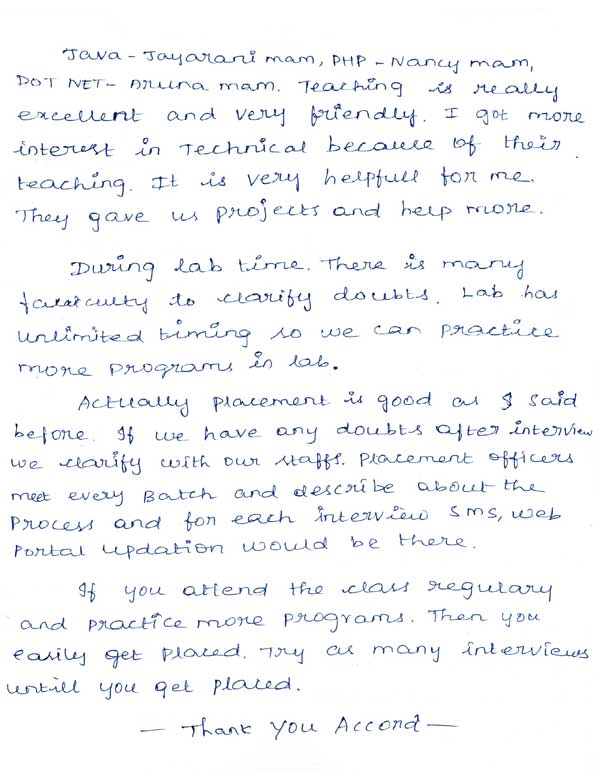 Java - Jayarani mam, PHP - Nancy mam,
DOT NET - Aruna mam. Teaching is really
excellent and very friendly. I got more
interest in Technical because of their
teaching. It is very helpfull for me.
They gave us projects and help more.
During lab time. There is many
to clarify doubts. Lab has
unlimited timing so we can practice
more programs in lab.
Actually placement is good as I said
before. If we have any doubts after interview
we clarify with our staffs. Placement officers
meet every Batch and describe about the
Process and for each interview SMS, Web
Portal updation would be there.
If you attend the class regulary
and practice more programs. Then you
easily get placed. Try as many interviews
untill you get placed.
— Thank You Accord —